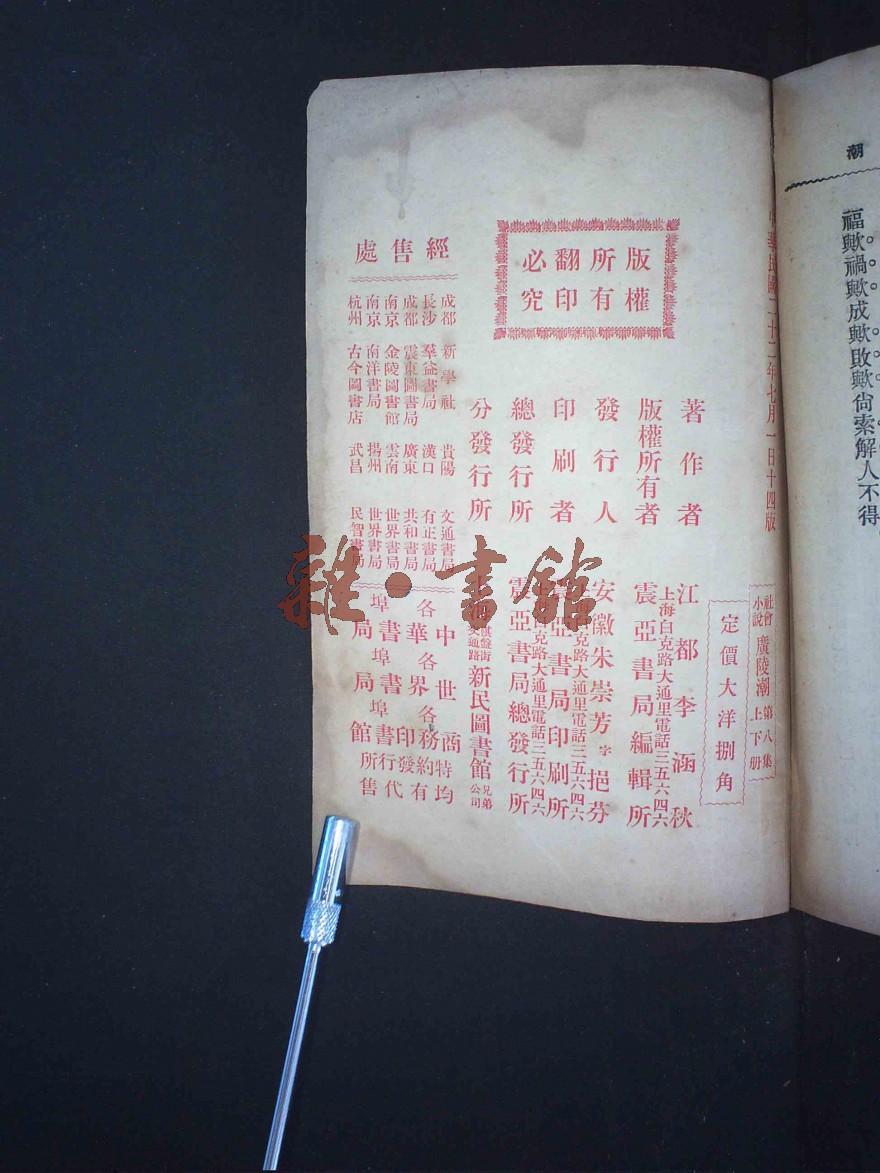 潮
福歟。禍歟。成歟。敗歟。尙索解人不得
中華民國二十二年七月一日十四版
社會小說 廣陵潮 第八集 上下册
定價大洋捌角
版權所有
翻印必究
著作者 江都李涵秋
版權所有者 震亞書局編輯所 上海白克路大通里電話三五六四六
發行人 安徽朱崇芳字挹芬
印刷者 震亞書局印刷所 上海白克路大通里電話三五六四六
總發行所 震亞書局總發行所 上海白克路大通里電話三五六四六
分發行所 上海棋盤街交通路 新民圖書館兄弟公司
經售處
成都 新學社 貴陽 文通書局
長沙 羣益書局 漢口 有正書局
成都 震東圖書局 廣東 共和書局
南京 金陵圖書館 雲南 世界書局
南京 南洋書局 揚州 世界書局
杭州 古今圖書店 武昌 民智書局
中華書局 世界書局 商務印書館
各埠 各埠 各埠
特約發行所 均有代售
雜·書館